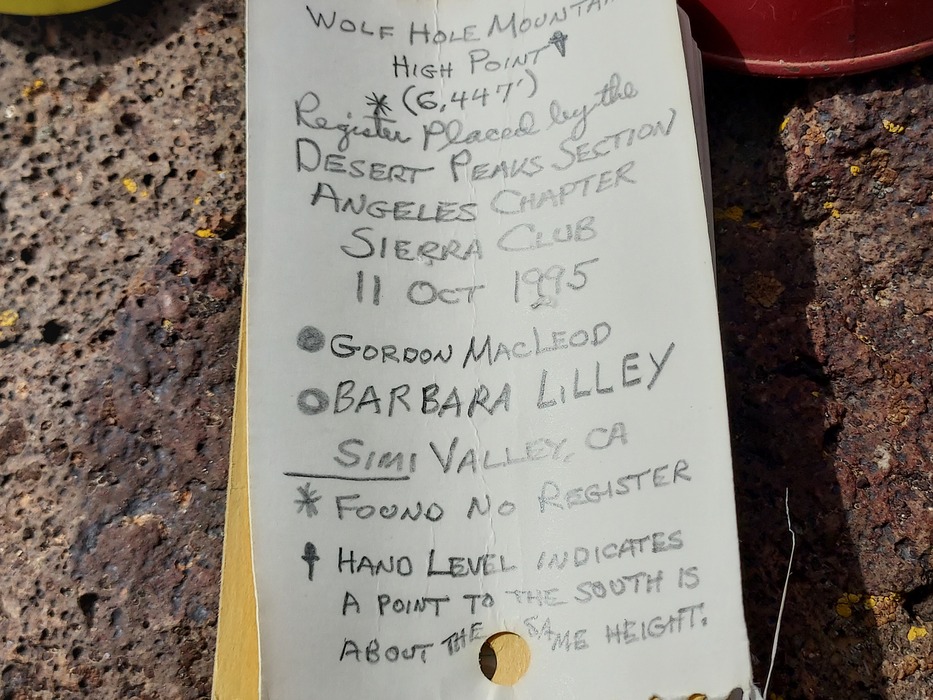 WOLF HOLE MOUNTAI
HIGH POINT †
* (6,447')
Register Placed by the
DESERT PEAKS SECTION
ANGELES CHAPTER
SIERRA CLUB
11 OCT 1995
● GORDON MACLEOD
● BARBARA LILLEY
SIMI VALLEY, CA
* FOUND NO REGISTER
† HAND LEVEL INDICATES
A POINT TO THE SOUTH IS
ABOUT THE SAME HEIGHT.